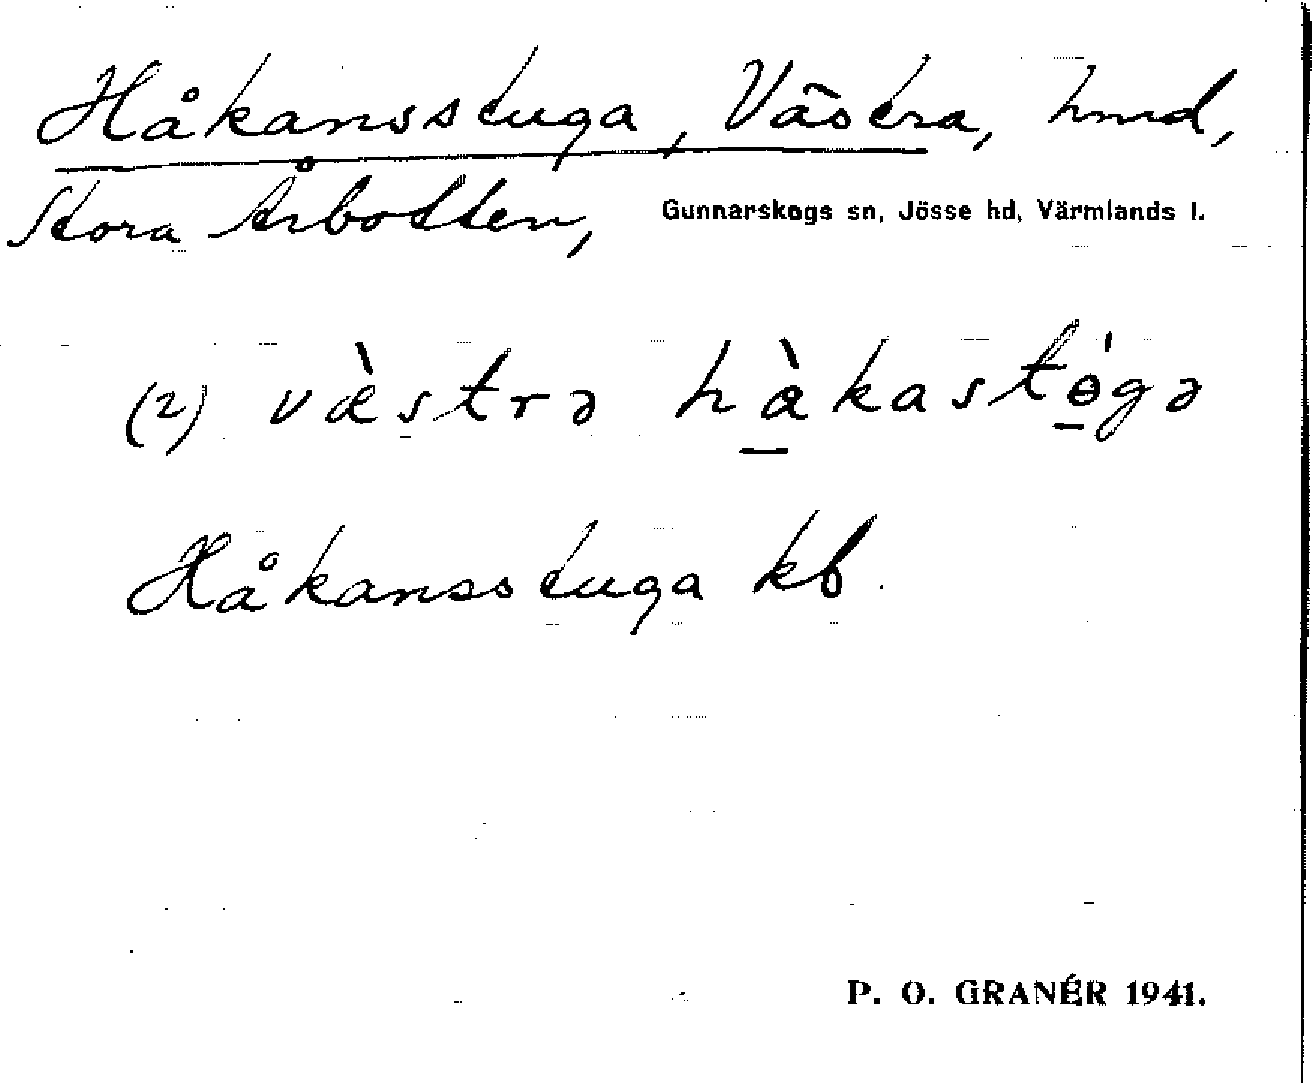 Håkansstuga, Västra, hmd,
Stora Årbotten, Gunnarskogs sn, Jösse hd, Värmlands l.
(2) væ̀strə hàkastө́gə
Håkansstuga kb.
P. O. GRANÉR 1941.